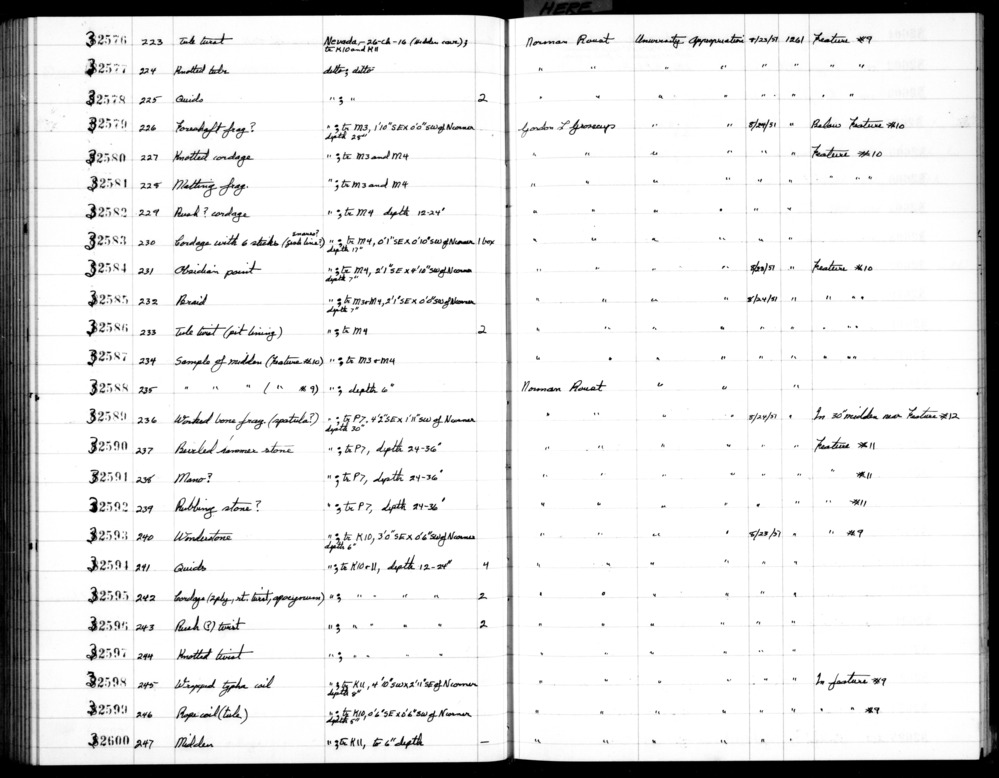 HERE
32576 223 Tule twist Nevada,-26-Ch-16 (Hidden cave); Norman Roust University Appropriation 5/23/51 1261 Feature #9
tr K10 and K11
32577 224 Knotted tule ditto; ditto " " " " " " " " "
32578 225 Quids " ; " 2 " " " " " " " "
32579 226 Foreshaft frag? " ; tr M3, 1'10" SE x 0'0" SW of N corner Gordon L Grosscup " " 5/24/51 " Below Feature #10
depth 28"
32580 227 Knotted cordage " ; tr M3 and M4 " " " " " " Feature #10
32581 228 Matting frag. " ; tr M3 and M4 " " " " " " " " "
32582 229 Rush? cordage " ; tr M4 depth 12-24" " " " " " "
32583 230 Cordage with 6 sticks (snares? line?) " ; tr M4, 0'1" SE x 0'10" SW of N corner 1 box " " " " " " "
depth 17"
32584 231 Obsidian point " ; tr M4, 2'1" SE x 4'10" SW of N corner " " " " 5/23/51 " Feature #10
depth 7"
32585 232 Braid " ; tr M3+M4, 2'1" SE x 0'0" SW of N corner " " " " 5/24/51 " " "
depth 7"
32586 233 Tule twist (pit lining) " ; tr M4 2 " " " " " " " "
32587 234 Sample of midden (Feature #10) " ; tr M3+M4 " " " " " " " "
32588 235 " " " ( " #9) " ; depth 6" Norman Roust " " "
32589 236 Worked bone frag. (spatula?) " ; tr P7, 4'2" SE x 1'11" SW of N corner " " " " 5/24/51 " In 30" midden near Feature #12
depth 30"
32590 237 Beveled hammer stone " ; tr P7, depth 24-36" " " " " " " Feature #11
32591 238 Mano? " ; tr P7, depth 24-36" " " " " " " " #11
32592 239 Rubbing stone? " ; tr P7, depth 24-36" " " " " " " " #11
32593 240 Wonderstone " ; tr K10, 3'0" SE x 0'6" SW of N corner " " " " 5/23/51 " " #9
depth 6"
32594 241 Quids " ; tr K10+11, depth 12-24" 4 " " " " " "
32595 242 Cordage (2 ply, rt. twist, apocynum) " ; " " " " 2 " " " " " "
32596 243 Rush (?) twist " ; " " " " 2 " " " " " "
32597 244 Knotted twist " ; " " " " " " " " " "
32598 245 Wrapped typha coil " ; tr K11, 4'10" SW x 2'11" SE of N corner " " " " " " In feature #9
depth 8"
32599 246 Rope coil (tule) " ; tr K10, 0'6" SE x 0'6" SW of N corner " " " " " " " " #9
depth 5"
32600 247 Midden " ; tr K11, to 6" depth — " " " " " "